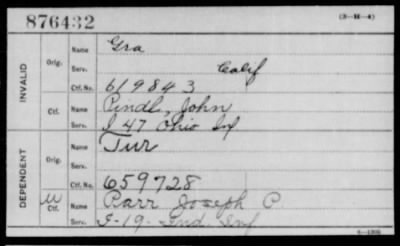 876432 (3-M-4)
INVALID Orig. Name Gra
Serv. Calif
Ctf. No. 619843
Ctf. Name Pindl, John
Serv. I 47 Ohio Inf
DEPENDENT Orig. Name Jur
Serv.
Ctf. No. 659728
M Ctf. Name Parr Joseph P.
Serv. I-19- Ind. Inf